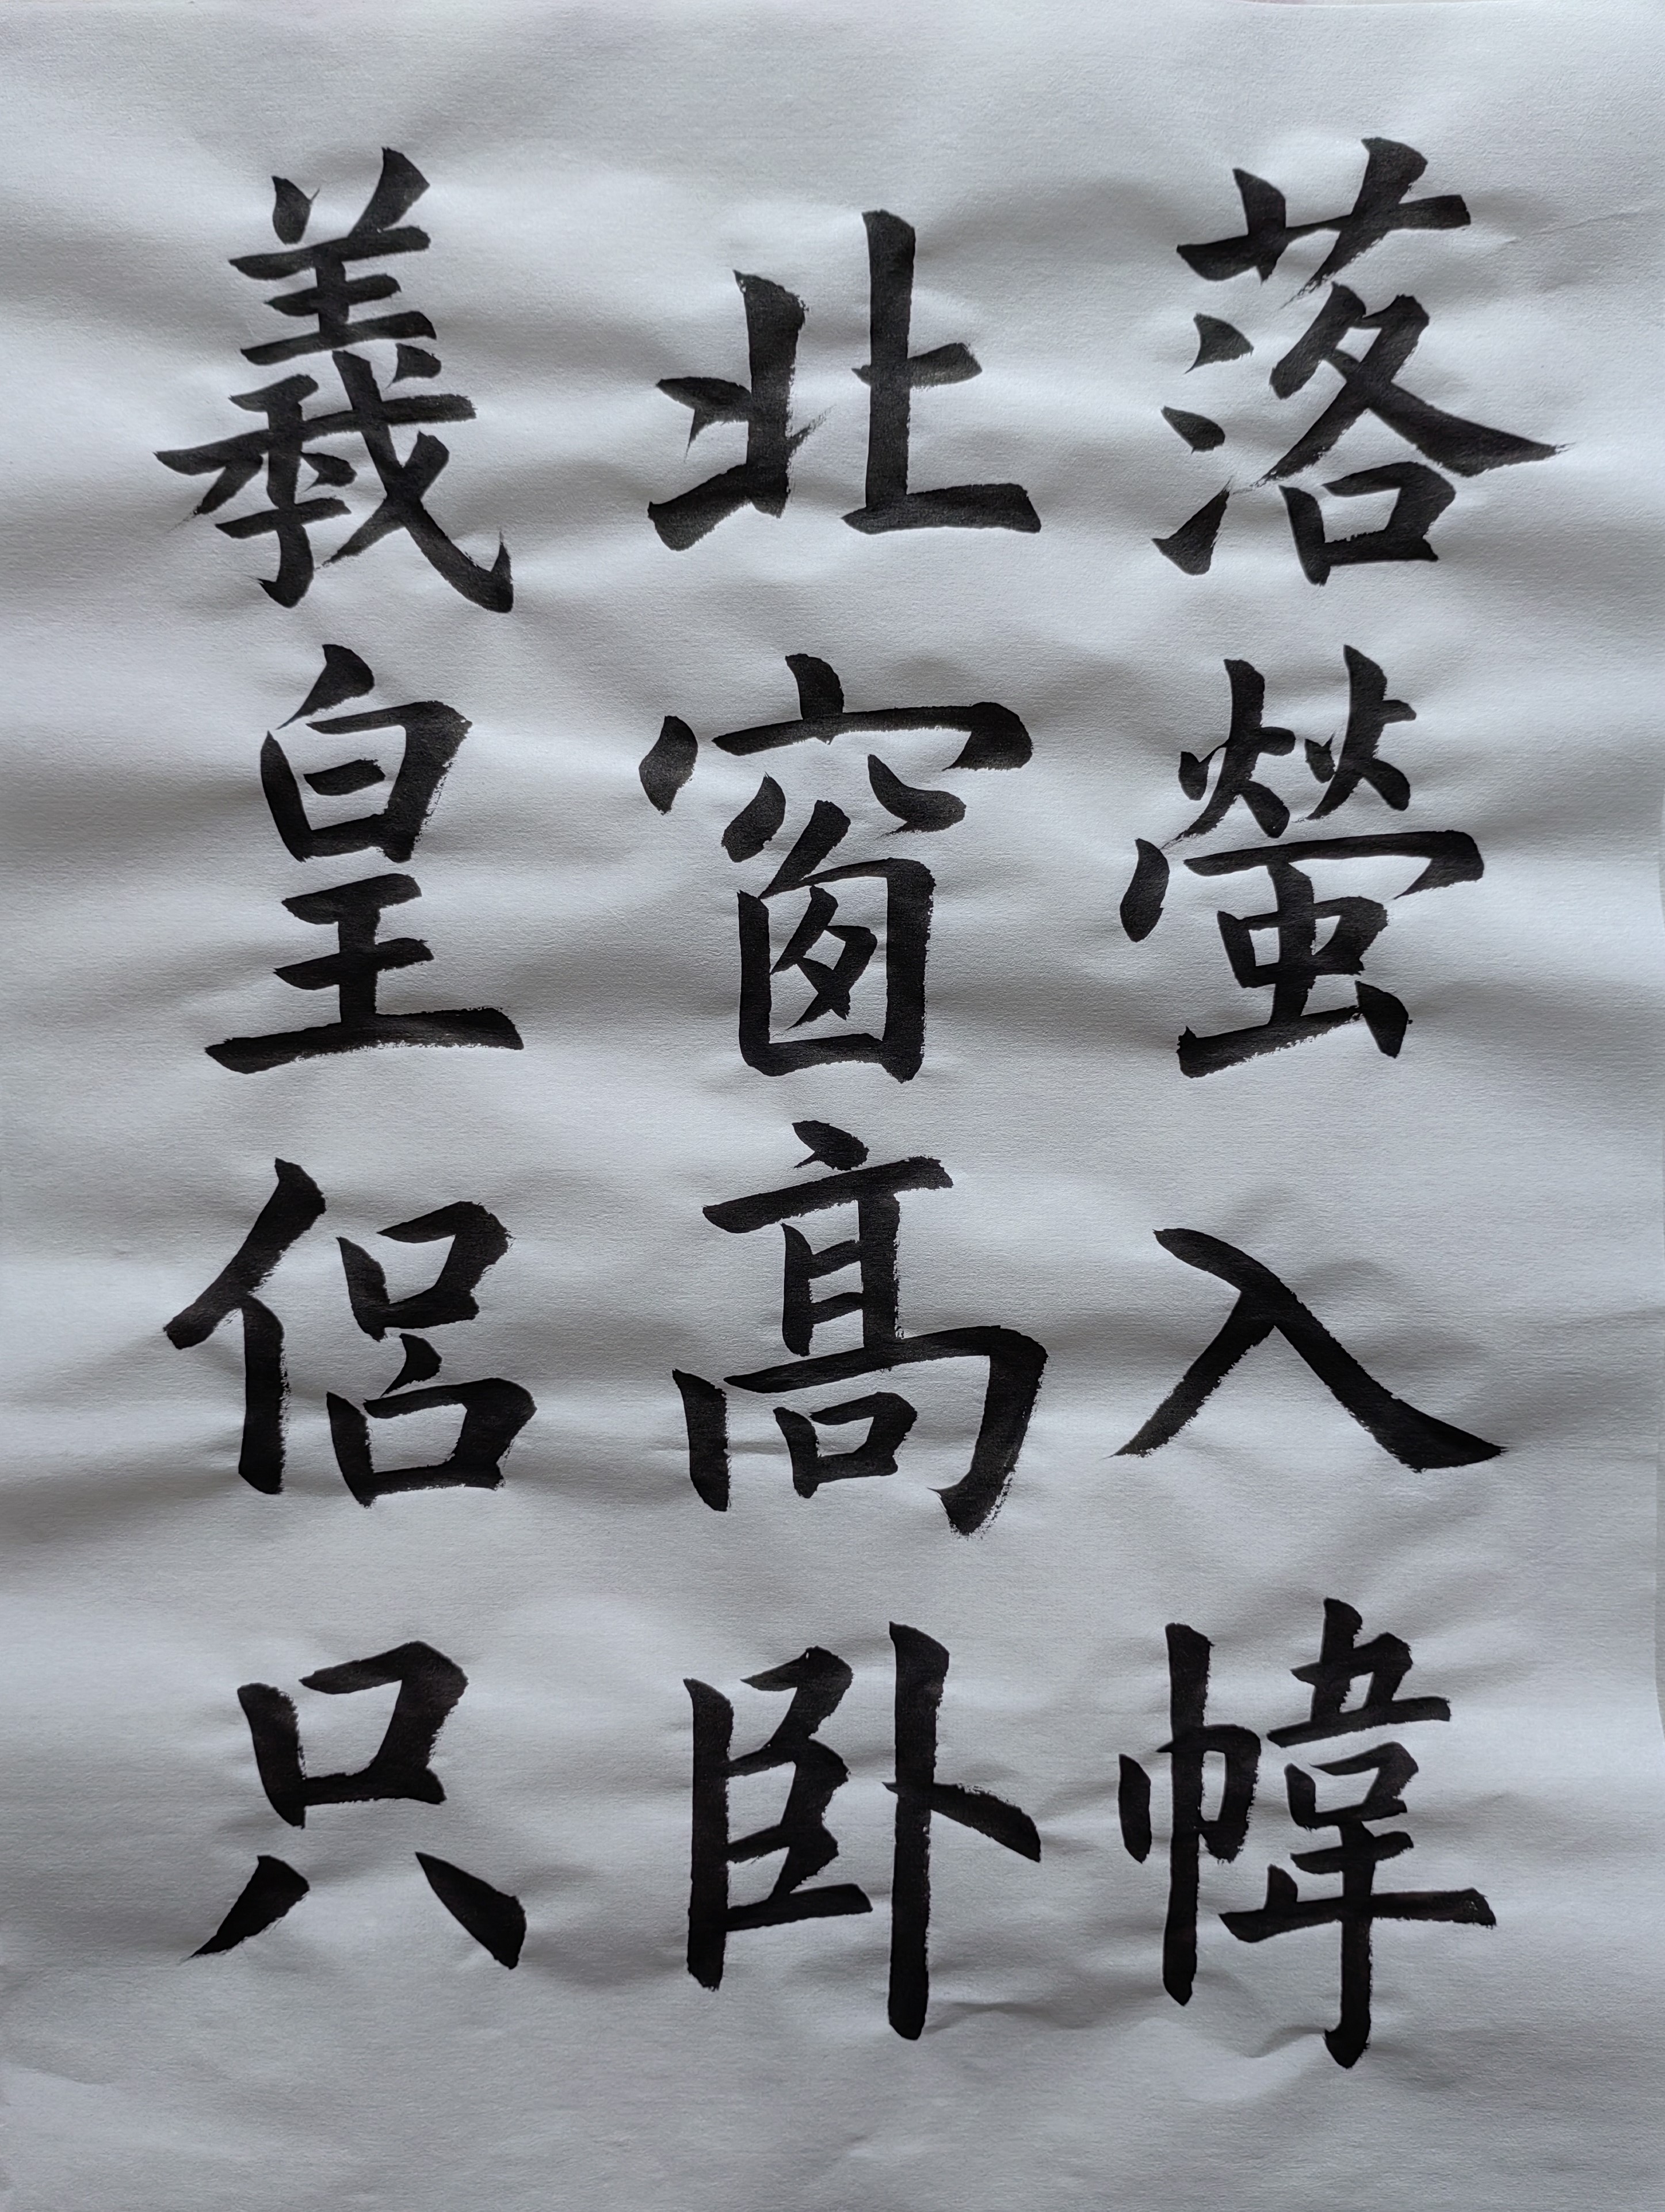 落螢入幃
北窗高卧
羲皇侣只